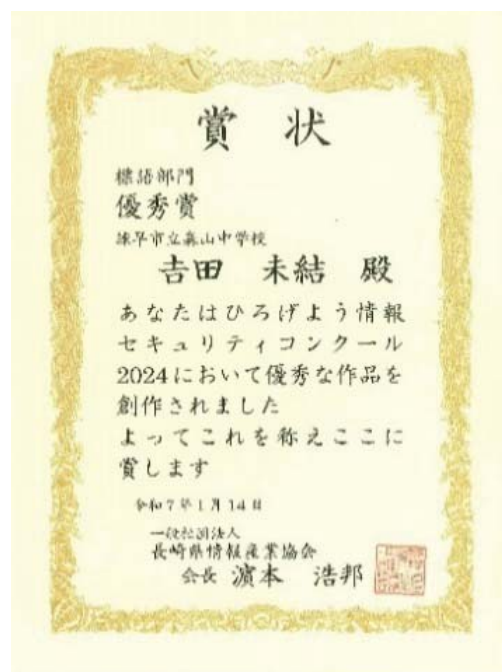 賞状
標語部門
優秀賞
諫早市立森山中学校
吉田 未結 殿
あなたはひろげよう情報
セキュリティコンクール
2024において優秀な作品を
創作されました
よってこれを称えここに
賞します
令和7年1月14日
一般社団法人
長崎県情報産業協会
会長 濵本 浩邦